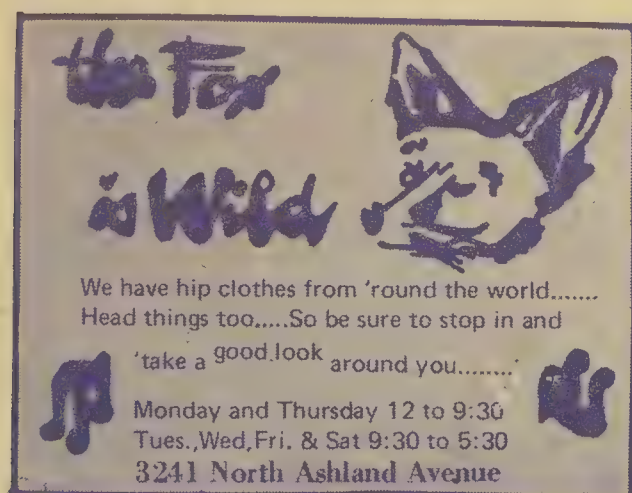 the Fox
is Wild
We have hip clothes from 'round the world.......
Head things too.....So be sure to stop in and
'take a good look around you........'
Monday and Thursday 12 to 9:30
Tues.,Wed,Fri. & Sat 9:30 to 5:30
3241 North Ashland Avenue